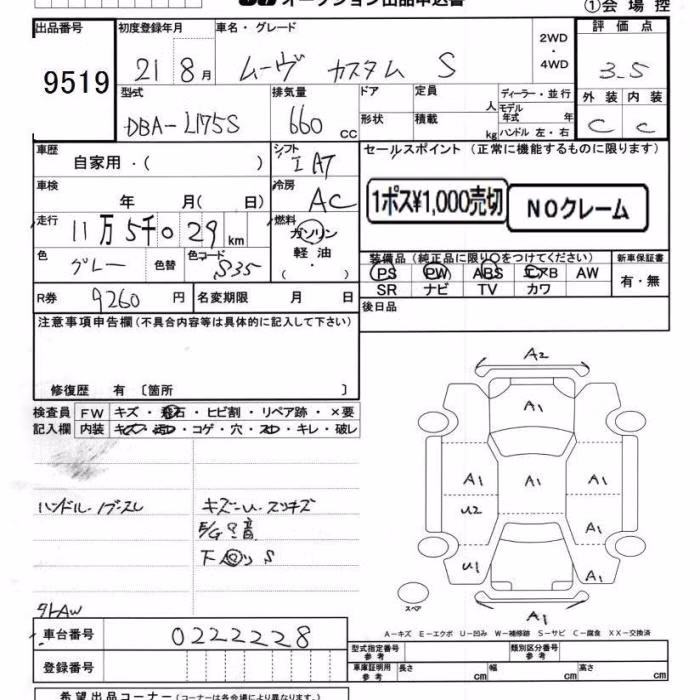 オークション出品申込書
①会場控
出品番号 初度登録年月 車名・グレード 2WD・4WD 評価点
9519 21 8月 ムーヴ カスタム S 3.5
型式 排気量 ドア 定員 人 ディーラー・並行 外装 内装
DBA-L175S 660 cc 形状 積載 kg モデル年式 年 ハンドル 左・右 C C
車歴 自家用・( ) シフト I AT セールスポイント (正常に機能するものに限ります)
車検 年 月( 日) 冷房 AC
1ポス¥1,000売切 NOクレーム
走行 11万5千029km 燃料 ガソリン 軽油 ( ・ )
色 グレー 色替 色コード S35
装備品 (純正品に限り○をつけてください) 新車保証書
PS PW ABS エアB AW 有・無
SR ナビ TV カワ
R券 9260円 名変期限 月 日
後日品
注意事項申告欄(不具合内容等は具体的に記入して下さい)
修復歴 有 〔箇所 〕
検査員 FW キズ・飛石・ヒビ割・リペア跡・×要
記入欄 内装 キズ・汚れ・コゲ・穴・スレ・キレ・破レ
A2
A1
A1 A1 A1
U2
A1
U1
A1
A1
スペア
ハンドル・ノブスレ キズ-U-スリキズ
E/G
下 S
A-キズ E-エクボ U-凹み W-補修跡 S-サビ C-腐食 XX-交換済
車台番号 0222228
登録番号
型式指定番号 参考 類別区分番号 参考
車庫証明用 参考 長さ cm 幅 cm 高さ cm
希望出品コーナー (コーナーは各会場により異なります。)